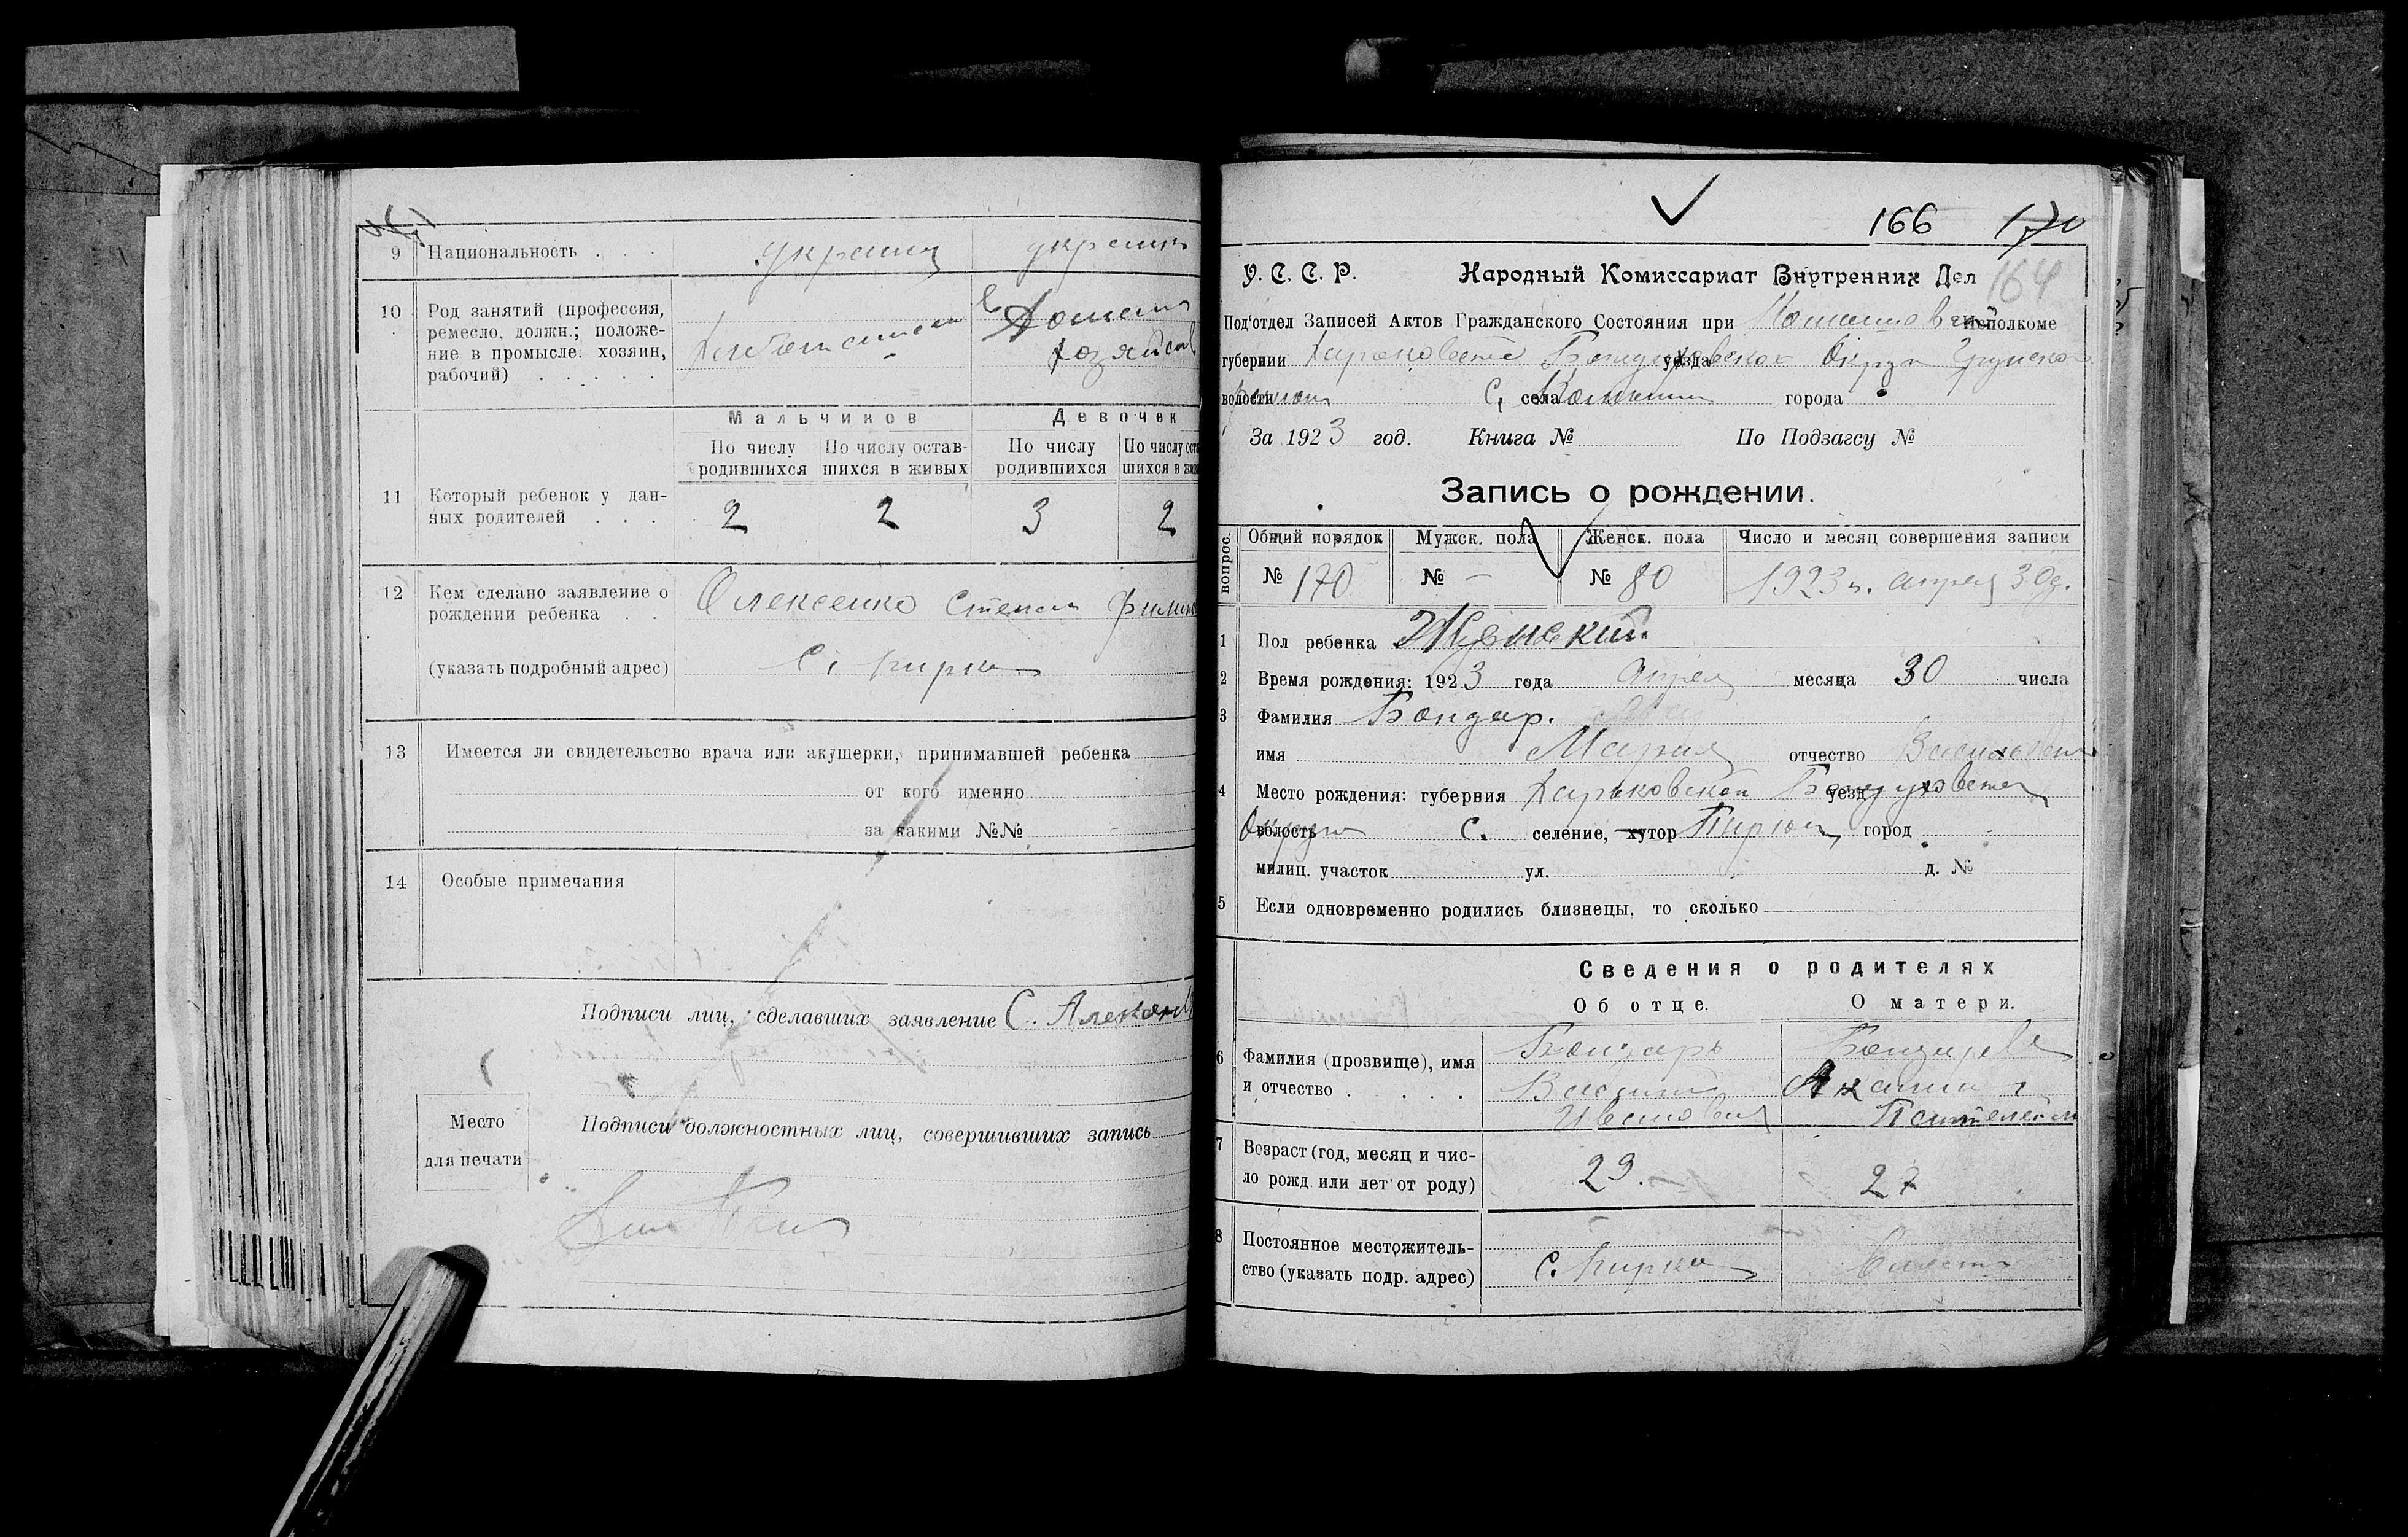 9 Национальность . . . украинц украинк
10 Род занятий (профессия,
ремесло, должн.; положе-
ние в промысле: хозяин,
рабочий) . . . . .
в Домашн
хозяйств
Мальчиков Девочек
По числу родившихся По числу остав-шихся в живых По числу родившихся По числу оста шихся в жив
11 Который ребенок у дан-
ных родителей . . .
2 2 3 2
12 Кем сделано заявление о
рождении ребенка . .
Олексенко Степан
(указать подробный адрес) с. Кирки
13 Имеется ли свидетельство врача или акушерки, принимавшей ребенка
от кого именно
за какими №№ -
14 Особые примечания
Подписи лиц, сделавших заявление С.
Место
для печати
Подписи должностных лиц, совершивших запись
166 170
У. С. С. Р. Народный Комиссариат Внутренних Дел 164
Под'отдел Записей Актов Гражданского Состояния при исполкоме
губернии Харьковской уезда Богодуховской Округи
волости района с, села города
За 1923 год. Книга № По Подзагсу №
Запись о рождении.
вопрос. Общий порядок Мужск. пола Женск. пола Число и месяц совершения записи
№ 170 № - № 80 1923 г. апреля 30 д.
1 Пол ребенка Женский.
2 Время рождения: 1923 года апреля месяца 30 числа
3 Фамилия Бондар.
имя Мария отчество Васильевна
4 Место рождения: губерния Харьковской уезд Богодуховской
Округи волость с. селение, хутор город
милиц. участок ул. д. №
5 Если одновременно родились близнецы, то сколько
Сведения о родителях
Об отце. О матери.
6 Фамилия (прозвище), имя
и отчество . . . . .
Бондарь Бондарева
Василий
7 Возраст (год, месяц и чис-
ло рожд. или лет от роду)
29. 27
8 Постоянное местожитель-
ство (указать подр. адрес)
с. Кирки Вместе